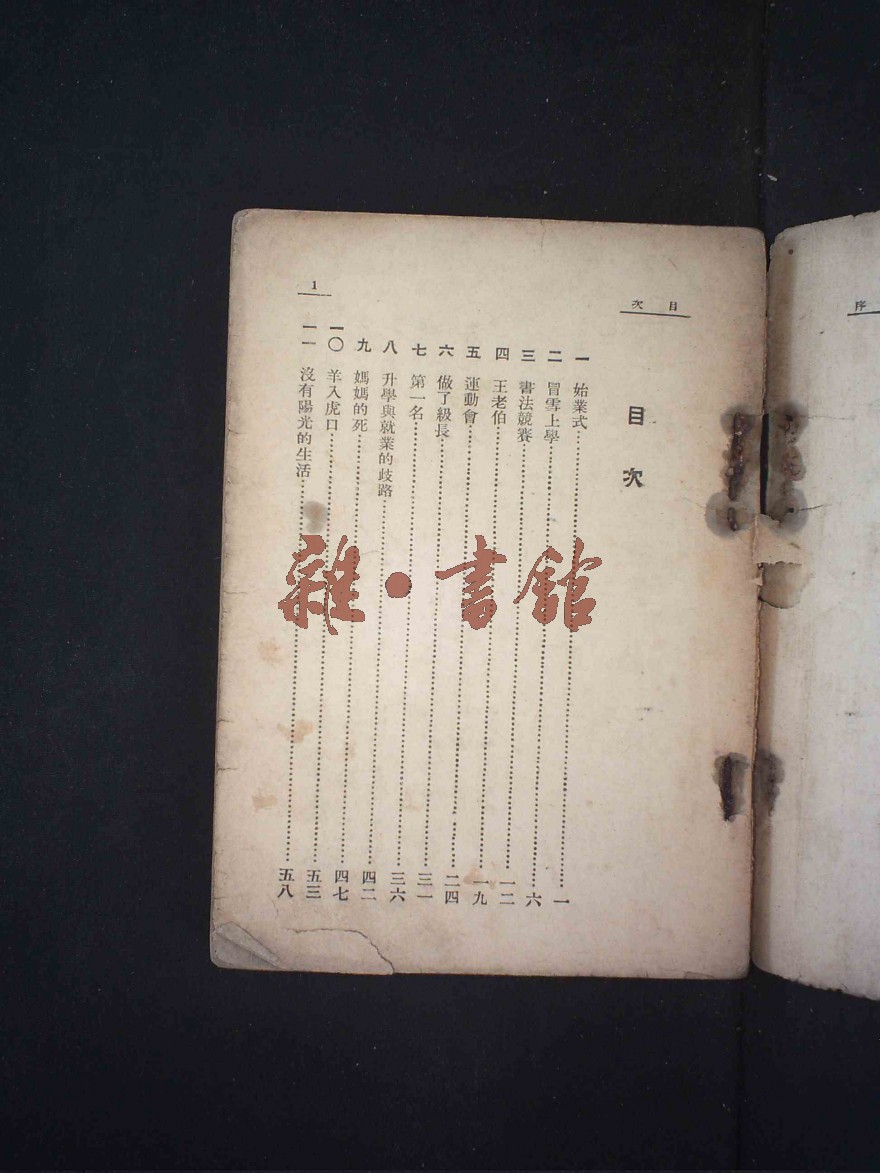 序
目次
目次
一 始業式……一
二 冒雪上學……六
三 書法競賽……一二
四 王老伯……一九
五 運動會……二四
六 做了級長……三一
七 第一名……三六
八 升學與就業的歧路……四二
九 媽媽的死……四七
一〇 羊入虎口……五三
一一 沒有陽光的生活……五八
1
雜·書館